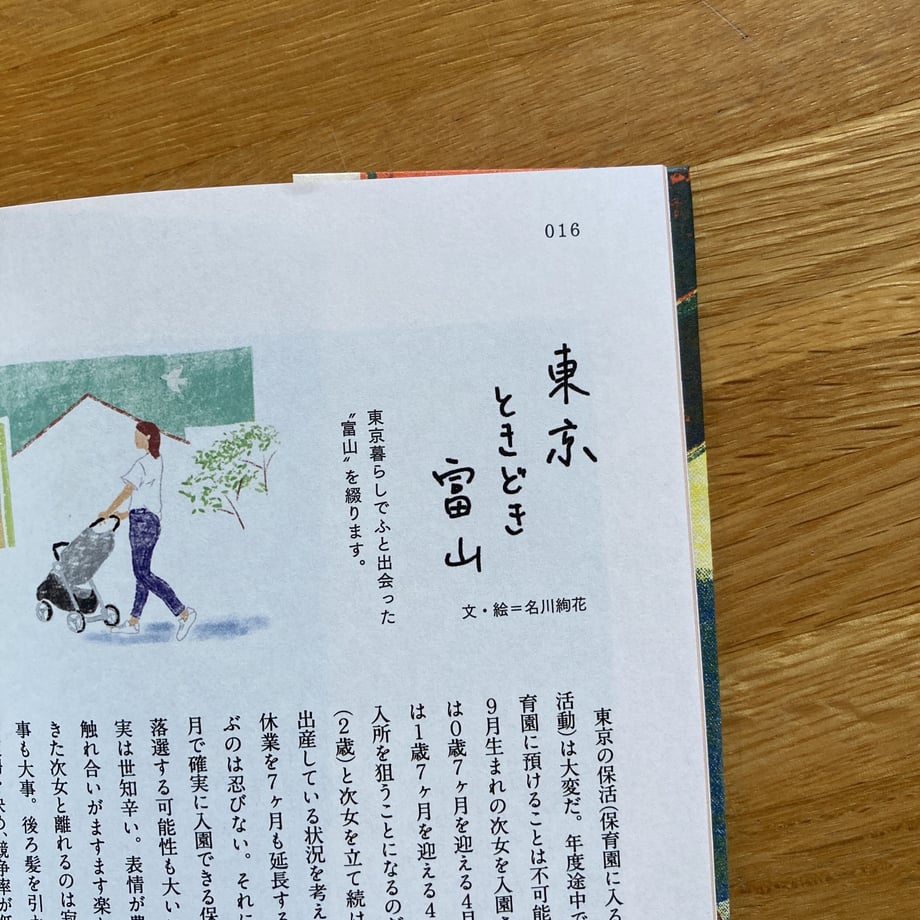 016
東京
ときどき
富山
文・絵=名川絢花
東京暮らしでふと出会った
“富山”を綴ります。
東京の保活(保育園に入る
活動)は大変だ。年度途中で
育園に預けることは不可能
9月生まれの次女を入園
は0歳7ヶ月を迎える4月
は1歳7ヶ月を迎える4
入所を狙うことになるのだ
(2歳)と次女を立て続け
出産している状況を考え
休業を7ヶ月も延長する
ぶのは忍びない。それに
月で確実に入園できる保
落選する可能性も大い
実は世知辛い。表情が豊
触れ合いがますます楽
きた次女と離れるのは寂
事も大事。後ろ髪を引か